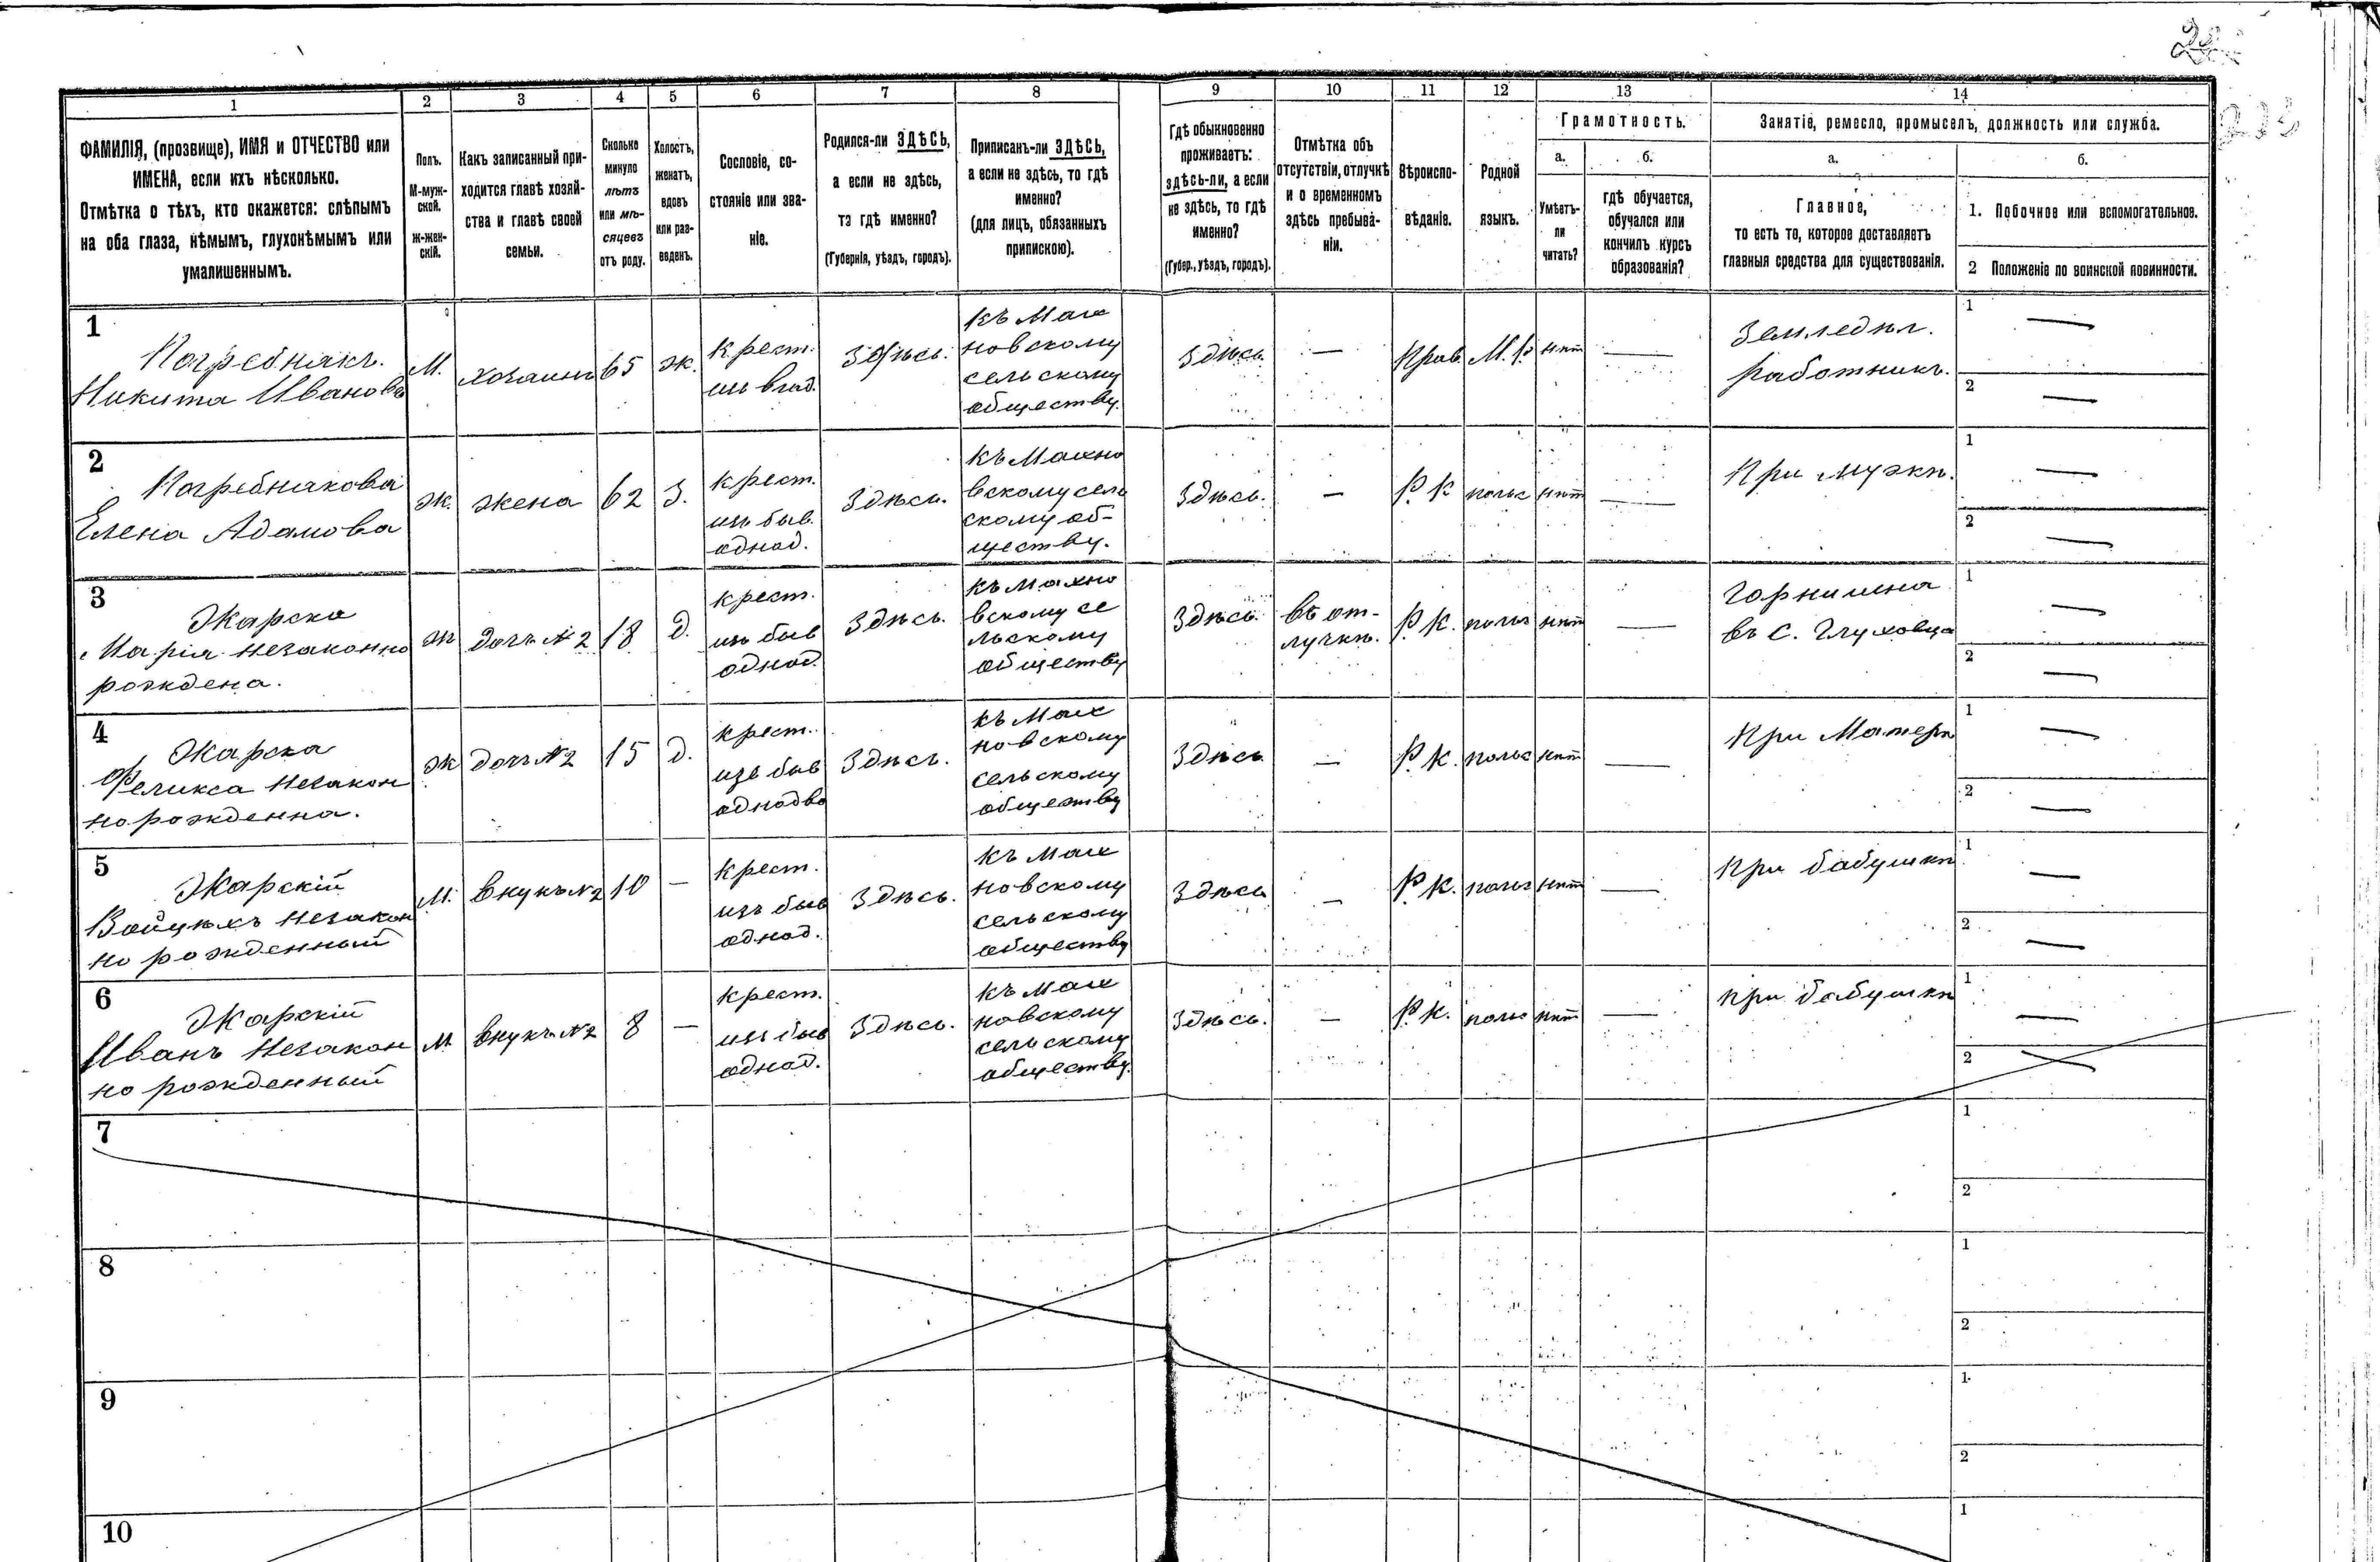 1 2 3 4 5 6 7 8 9 10 11 12 13 14
ФАМИЛІЯ, (прозвище), ИМЯ и ОТЧЕСТВО или
ИМЕНА, если ихъ нѣсколько.
Отмѣтка о тѣхъ, кто окажется: слѣпымъ
на оба глаза, нѣмымъ, глухонѣмымъ или
умалишеннымъ.
Полъ.
М-муж-
ской.
Ж-жен-
скій.
Какъ записанный при-
ходится главѣ хозяй-
ства и главѣ своей
семьи.
Сколько
минуло
лѣтъ
или мѣ-
сяцевъ
отъ роду.
Холостъ,
женатъ,
вдовъ
или раз-
веденъ.
Сословіе, со-
стояніе или зва-
ніе.
Родился-ли ЗДѢСЬ,
а если не здѣсь,
то гдѣ именно?
(Губернія, уѣздъ, городъ).
Приписанъ-ли ЗДѢСЬ,
а если не здѣсь, то гдѣ
именно?
(для лицъ, обязанныхъ
припискою).
Гдѣ обыкновенно
проживаетъ:
здѣсь-ли, а если
не здѣсь, то гдѣ
именно?
(Губер., уѣздъ, городъ).
Отмѣтка объ
отсутствіи, отлучкѣ
и о временномъ
здѣсь пребыва-
ніи.
Вѣроиспо-
вѣданіе.
Родной
языкъ.
Грамотность.
а.
Умѣетъ-
ли
читать?
б.
гдѣ обучается,
обучался или
кончилъ курсъ
образованія?
Занятіе, ремесло, промыселъ, должность или служба.
а.
Главное,
то есть то, которое доставляетъ
главныя средства для существованія.
б.
1. Побочное или вспомогательное.
2 Положеніе по воинской повинности.
1
Погребнякъ.
Никита Ивановъ
М.
хозаинъ
65
ж.
крест.
изъ влад.
Здѣсь.
къ Мах
новскому
сельскому
обществу.
Здѣсь
—
Прав.
М. р
нѣт
—
Земледѣл.
работникъ.
1 —
2 —
2
Погребнякова
Елена Адамова
ж.
жена
62
З.
крест.
изъ быв.
однод.
Здѣсь.
къ Махно
вскому сель
скому об-
ществу.
Здѣсь.
—
Р. К
польс
нѣт
—
При мужѣ.
1 —
2 —
3
Жарска
Марія незаконно
рождена.
ж
дочь №2
18
д.
крест.
изъ быв
однод.
Здѣсь.
къ Махно
вскому се
льскому
обществу
Здѣсь
въ от-
лучкѣ.
Р. К.
польс
нѣт
—
Горнишна
въ с. Глуховца
1 —
2 —
4
Жарска
Феликса незакон
норожденна.
ж
дочь №2
15
д.
крест.
изъ быв
однодво
Здѣсь.
къ Мах
новскому
сельскому
обществу
Здѣсь
—
Р. К.
польс
нѣт
—
При Матери
1 —
2 —
5
Жарскій
Войцѣхъ незакон
но рожденный
М.
внукъ №2
10
—
крест.
изъ быв
однод.
Здѣсь.
къ Мах
новскому
сельскому
обществу
Здѣсь
—
Р. К.
польс
нѣт
—
При бабушкѣ
1 —
2 —
6
Жарскій
Иванъ незакон
но рожденный
М
внукъ №2
8
—
крест.
изъ быв
однод.
Здѣсь.
къ Мах
новскому
сельскому
обществу.
Здѣсь.
—
Р. К.
польс
нѣт
—
при бабушкѣ
1 —
2 —
7
1
2
8
1
2
9
1
2
10
1